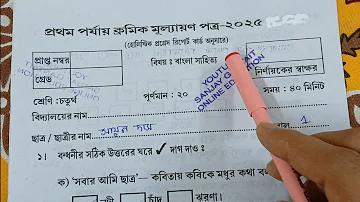 প্রথম পর্যায় ক্রমিক মূল্যায়ণ পত্র-২০২৫
(হোলিস্টিক প্রগ্রেস রিপোর্ট কার্ড অনুসারে)
প্রাপ্ত নম্বর
গ্রেড
বিষয় : বাংলা সাহিত্য
YOUTUBE
SANJAY G
ONLINE ED
নির্ণায়কের স্বাক্ষর
শ্রেণি : চতুর্থ
পূর্ণমান : ২০
সময় : ৪০ মিনিট
বিদ্যালয়ের নাম
ছাত্র / ছাত্রীর নাম
1
১। বন্ধনীর সঠিক উত্তরের ঘরে ✓ দাগ দাও ঃ
ক) 'সবার আমি ছাত্র'— কবিতায় কবিকে মধুর কথা বল
চাঁদ
ঝরণা।